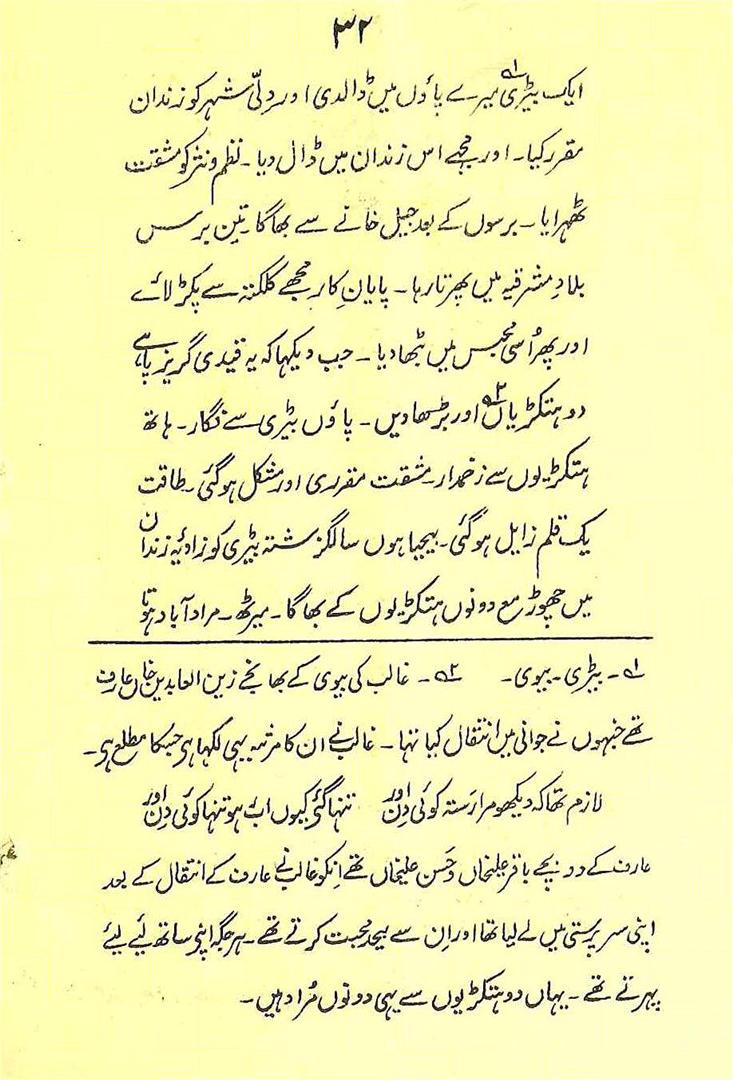 ۳۲
ایک بیڑی۱؎ میرے پاؤں میں ڈالدی اور دِلّی شہر کو زندان
مقرر کیا۔ اور مجہے اس زندان میں ڈال دیا۔ نظم و نثر کو مشقت
ٹھہرایا۔ برسوں کے بعد جیل خانے سے بھاگا تین برس
بلادِ مشرقیہ میں پھرتا رہا۔ پایانِ کار مجھے کلکتہ سے پکڑ لائے
اور پھر اُسی محبس میں بٹھا دیا۔ جب دیکہا کہ یہ قیدی گریز پا ہے
دو ہتکڑیاں۲؎ اور بڑھا دیں۔ پاؤں بیڑی سے فگار۔ ہاتھ
ہتکڑیوں سے زخمدار۔ مشقت مقرری اور مشکل ہو گئی۔ طاقت
یک قلم زایل ہو گئی۔ بیحیا ہوں سالگزشتہ بیڑی کو زاوئیہ زندان
میں چھوڑ مع دونوں ہتکڑیوں کے بھاگا۔ میرٹھ۔ مرادآباد ہوتا
۱؎۔ بیڑی۔ بیوی۔ ۲؎۔ غالب کی بیوی کے بھانجے زین العابدین خاں عارف
تھے جنہوں نے جوانی میں انتقال کیا تہا۔ غالب نے ان کا مرثیہ بہی لکہا ہی جسکا مطلع ہی۔
لازم تھا کہ دیکھو مرا رَستہ کوئی دِن اور تنہا گئی کیوں اب رہو تنہا کوئی دِن اور
عارف کے دو بچے باقر علیخاں و حَسن علیخاں تھے اِنکو غالب نے عارف کے انتقال کے بعد
اپنی سرپرستی میں لے لیا تھا اور اِن سے بیحد محبت کرتے تھے۔ ہر جگہ اپنی ساتھ لیٔے لیٔے
پہرتے تھے۔ یہاں دو ہتکڑیوں سے یہی دونوں مُراد ہیں۔